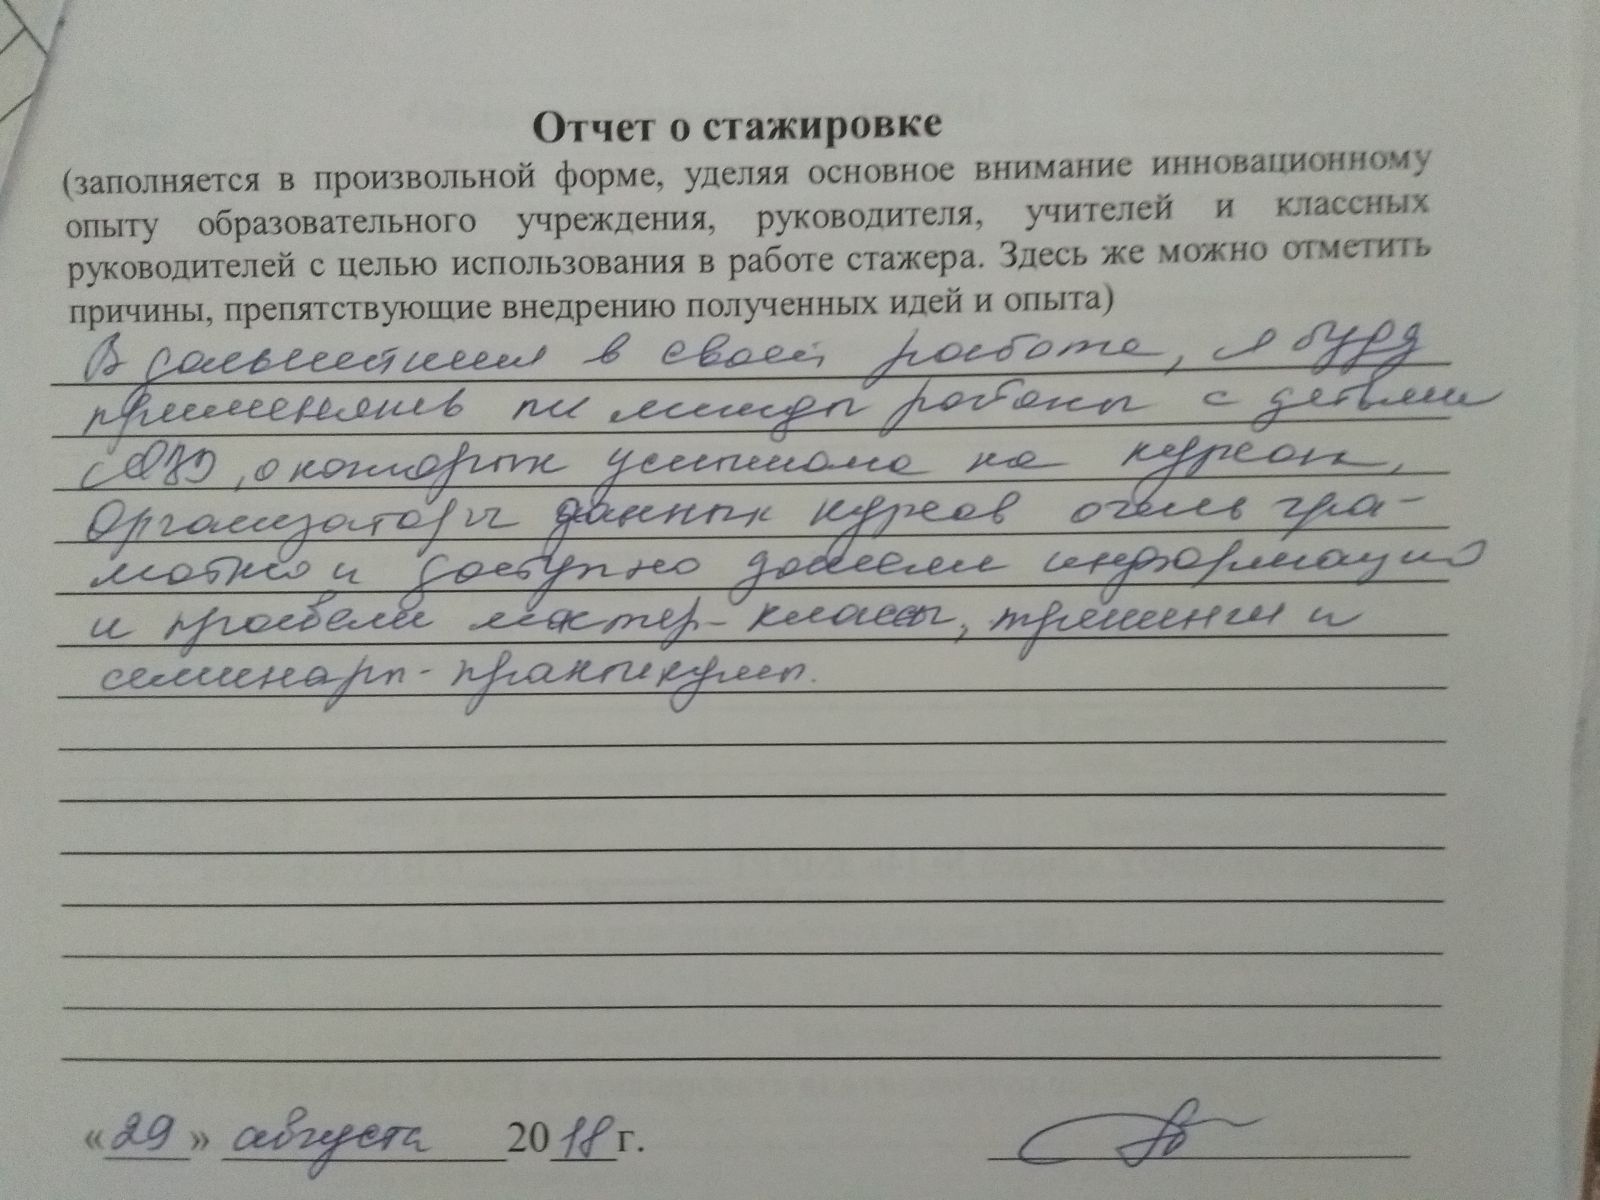 Отчет о стажировке
(заполняется в произвольной форме, уделяя основное внимание инновационному
опыту образовательного учреждения, руководителя, учителей и классных
руководителей с целью использования в работе стажера. Здесь же можно отметить
причины, препятствующие внедрению полученных идей и опыта)
В дальнейшем в своей работе, я буду
применять методы работы с детьми
с ОВЗ, о которых услышала на курсах.
Организаторы данных курсов очень гра-
мотно и доступно донесли информацию
и провели мастер-классы, тренинги и
семинары-практикумы.
«29» августа 2018 г.